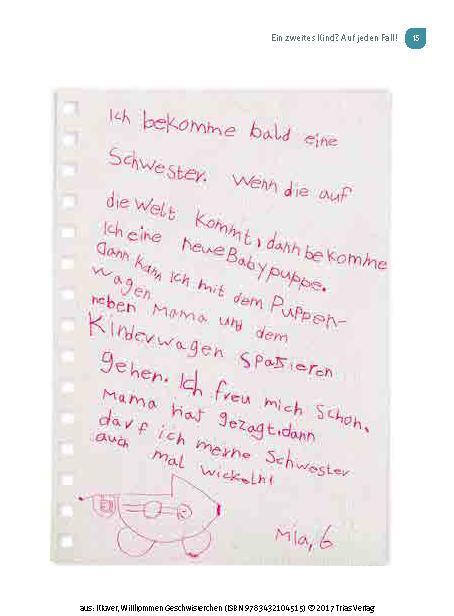 Ein zweites Kind? Auf jeden Fall!
15
Ich bekomme bald eine
Schwester. Wenn die auf
die Welt kommt, dann bekomme
Ich eine neue Babypuppe.
Dann kann ich mit dem Puppen-
wagen
neben Mama und dem
Kinderwagen spaßieren
gehen. Ich freu mich schon.
Mama hat gezagt, dann
darf ich meine Schwester
auch mal wickeln!
Mia, 6
aus: Klüver, Willkommen Geschwisterchen (ISBN 9783432104515) © 2017 Trias Verlag